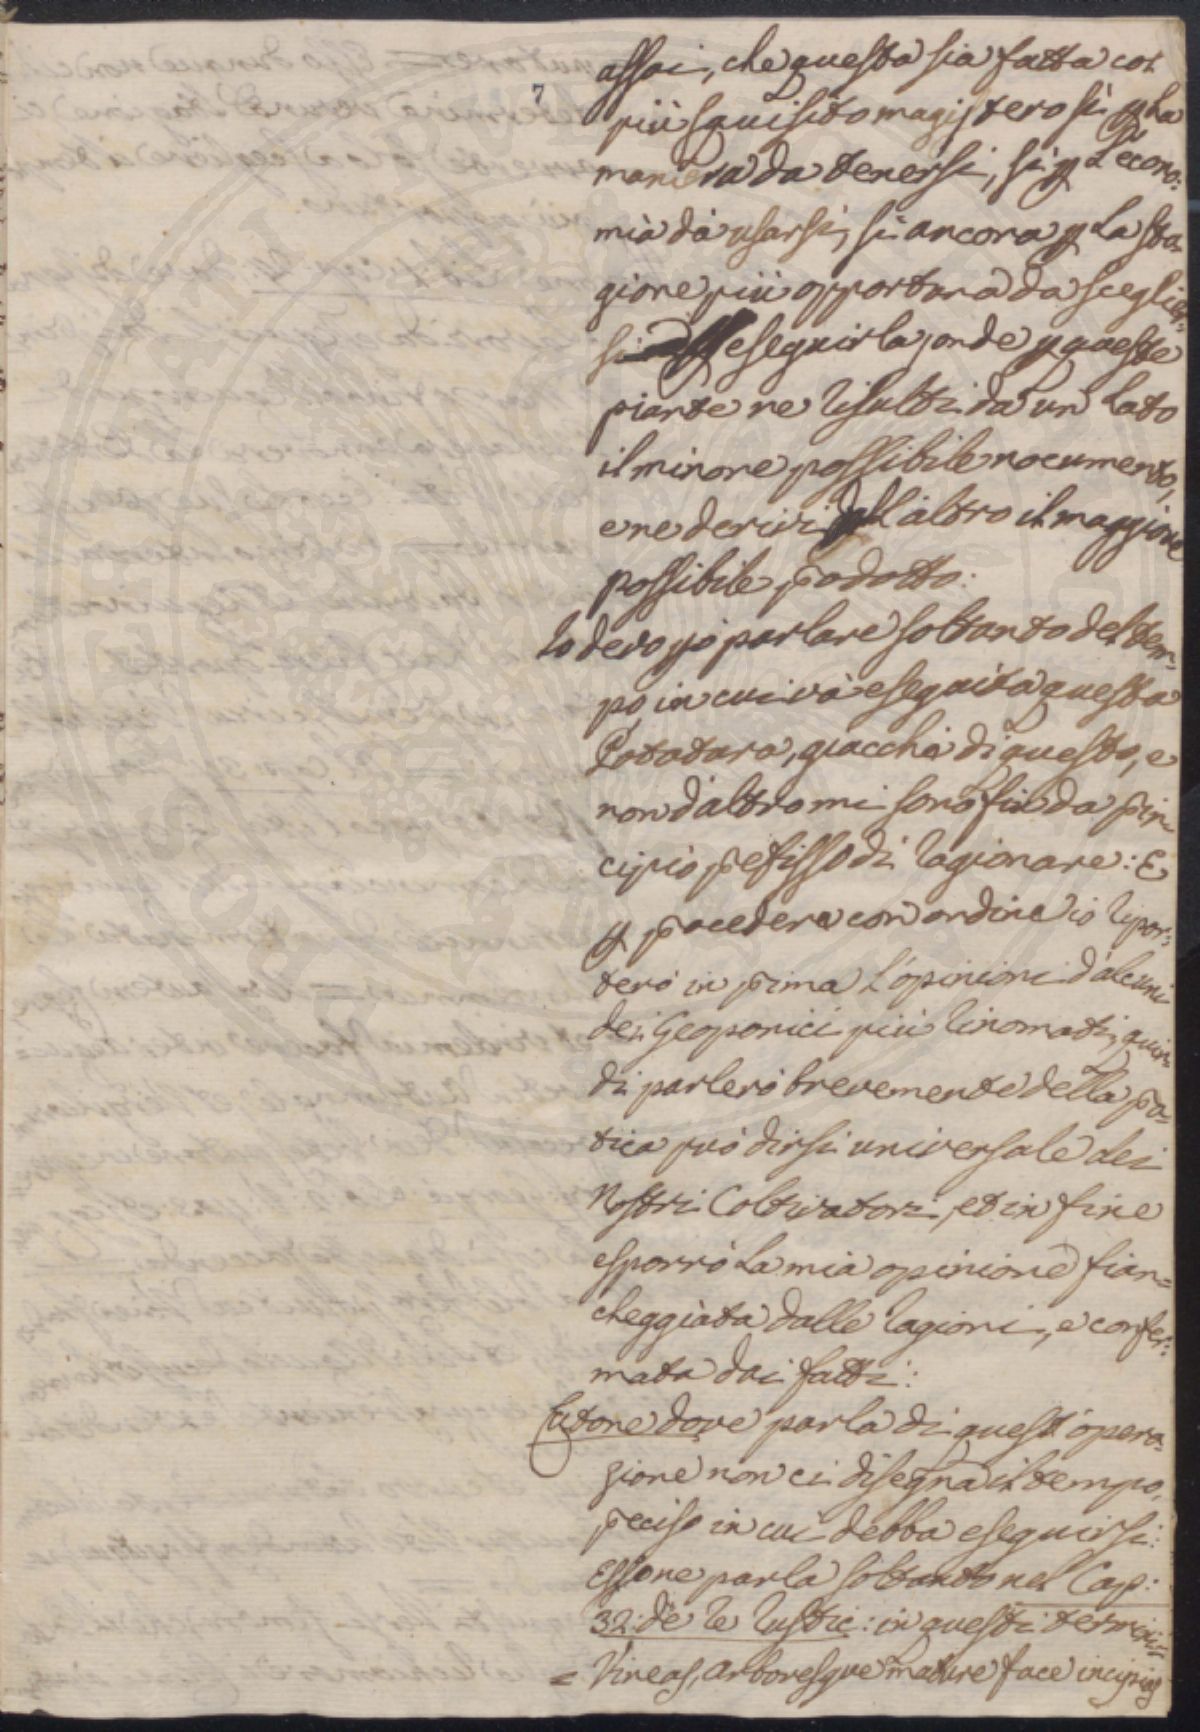 7
assai, che questa sia fatta col
più squisito magistero sì p la
maniera da tenersi, sì p l'econo:
mia da usarsi, sì ancora p la sta=
gione più opportuna da sceglier=
si eseguirla, onde p queste
piante ne risulti da un lato
il minore possibile nocumento,
e ne derivi dall'altro il maggiore
possibile prodotto:
Io devo pò parlare soltanto del tem=
po in cui và eseguita questa
Potatura, giacchè di questo, e
non d'altro mi sono fin da prin=
cipio prefisso di ragionare: E
p procedere con ordine io ripor=
terò in prima l'opinioni d'alcuni
dei Geoponici più rinomati, quin=
di parlerò brevemente della pra=
tica può dirsi universale dei
Nostri Coltivatori, et in fine
esporrò la mia opinione fian=
cheggiata dalle ragioni, e confer=
mata dai fatti:
Catone dove parla di quest'opera=
zione non ci disegna il tempo
preciso in cui debba eseguirsi:
Esso ne parla soltanto nel Cap:
32: de re rustic: in questi termini=
= Vineas, arboresque mature face incipias